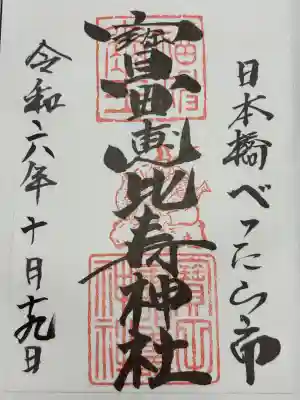 日本橋べったら市
寳田恵比寿神社
令和六年十月十九日